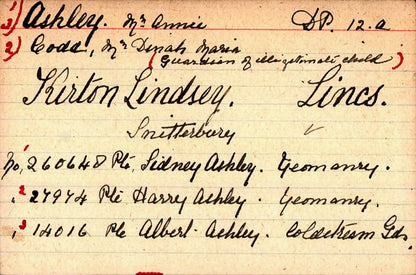 1) Ashley. Mrs Annie D.P. 12.a
2) Codd, Mrs Dinah Maria
(Guardian of illegitimate child)
Kirton Lindsey. Lincs.
Snitterbury ✓
No 1, 260648 Pte, Sidney Ashley. Yeomanry.
" 2 27974 Pte Harry Ashley. Yeomanry.
" 3 14016 Pte Albert Ashley. Coldstream Gds.